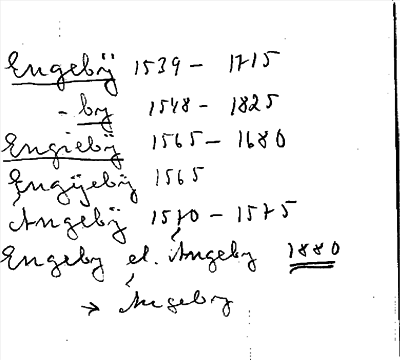 Engebÿ 1539 - 1715
- by 1548 - 1825
Engiebÿ 1565 - 1680
Engÿebÿ 1565
Ángebÿ 1570 - 1575
Engeby el. Ángeby 1880
→ Ángeby